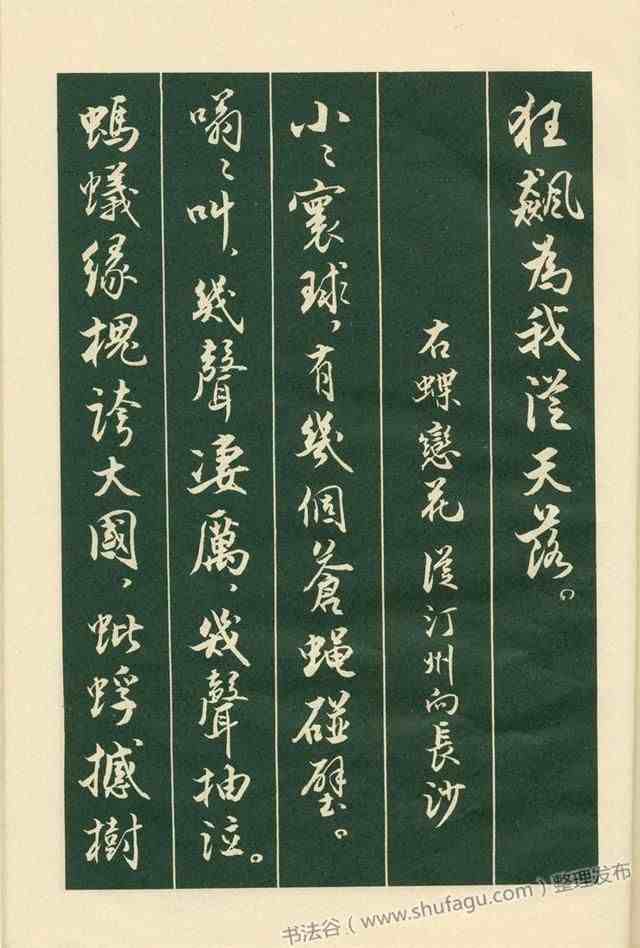 狂飆為我從天落。
右蝶戀花 從汀州向長沙
小〻寰球，有幾個蒼蝇碰壁。
嗡〻叫，幾聲淒厲，幾聲抽泣。
螞蟻緣槐誇大國，蚍蜉撼樹
书法谷（www.shufagu.com）整理发布